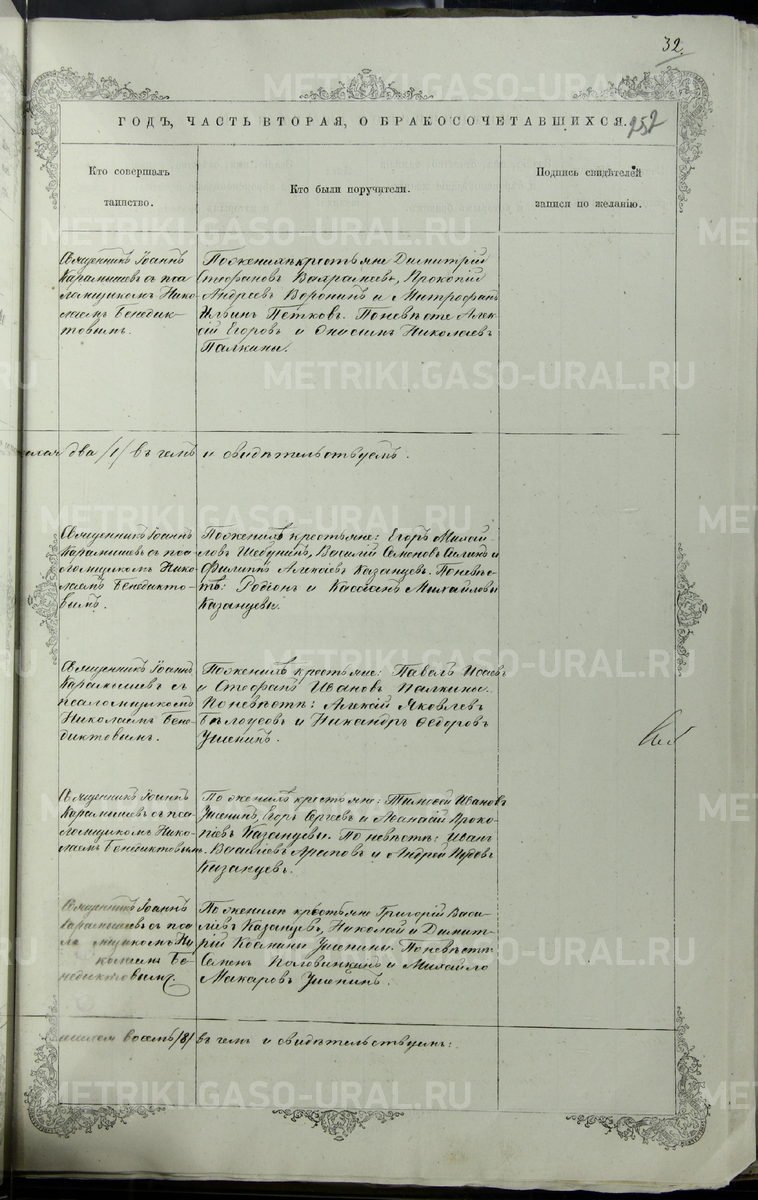 32.
252
ГОДЪ, ЧАСТЬ ВТОРАЯ, О БРАКОСОЧЕТАВШИХСЯ.
Кто совершалъ
таинство.
Кто были поручители.
Подпись свидѣтелей
записи по желанію.
Священникъ Іоаннъ
Карамышевъ съ пса
ломщикомъ Нико
лаемъ Бенедик-
товымъ.
По женихѣ крестьяне Димитрій
Стефановъ Варламовъ, Прокопій
Андреевъ Воронинъ и Митрофанъ
Ильинъ Пѣтковъ. По невѣстѣ Алек
сій Егоровъ и Онисимъ Николаевъ
Палкины.
два /2/ въ чемъ и свидѣтельствуемъ.
Священникъ Іоаннъ
Карамышевъ съ пса
ломщикомъ Нико
лаемъ Бенедикто-
вымъ.
По женихѣ крестьяне: Егоръ Михай
ловъ Шебунинъ, Василій Семеновъ и
Филиппъ Алексѣевъ Казанцевъ. По невѣс-
тѣ: Родіонъ и Кассіанъ Михайловы
Казанцевы.
Священникъ Іоаннъ
Карамышевъ съ
псаломщикомъ
Николаемъ Бене-
диктовымъ.
По женихѣ крестьяне: Павелъ Исаевъ
и Стефанъ Ивановъ Палкины.
По невѣстѣ: Алексій Яковлевъ
Бѣлоусовъ и Никандръ Ѳедоровъ
Ушенинъ.
Священникъ Іоаннъ
Карамышевъ съ пса
ломщикомъ Нико-
лаемъ Бенедиктовымъ.
По женихѣ крестьяне: Тимоѳей Ивановъ
Ушенинъ, Егоръ Сергѣевъ и Проко-
піевъ Казанцевы. По невѣстѣ: Иванъ
Васильевъ Араповъ и Андрей
Казанцевъ.
Священникъ Іоаннъ
Карамышевъ съ пса
ломщикомъ Ни
колаемъ Бе-
недиктовымъ.
По женихѣ крестьяне Григорій Васи-
льевъ Казанцевъ, Николай и Димит-
рій Ушенины. По невѣстѣ
Семенъ Половинкинъ и Михайло
Макаровъ Ушенинъ.
числом восемь /8/ въ чемъ и свидѣтельствуемъ:
METRIKI.GASO-URAL.RU
METRIKI.GASO-URAL.RU
METRIKI.GASO-URAL.RU
METRIKI.GASO-URAL.RU
METRIKI.GASO-URAL.RU
METRIKI.GASO-URAL.RU
METRIKI.GASO-URAL.RU
METRIKI.GASO-URAL.RU